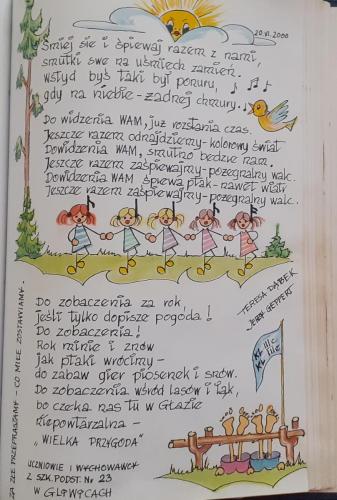 20.VI.2000
Śmiej się i śpiewaj razem z nami,
smutki swe na uśmiech zamień.
Wstyd byś taki był ponury,
gdy na niebie - żadnej chmury.
Do widzenia WAM, już rozstania czas.
Jeszcze razem odnajdziemy - kolorowy świat
Dowidzenia WAM, smutno będzie nam.
Jeszcze razem zaśpiewajmy - pożegnalny walc.
Dowidzenia WAM śpiewa ptak - nawet wiatr
Jeszcze razem zaśpiewajmy - pożegnalny walc.
TERESA DĄBEK
JERZY GEPPERT
Do zobaczenia za rok,
jeśli tylko dopisze pogoda!
Do zobaczenia!
Rok minie i znów
jak ptaki wrócimy -
do zabaw gier piosenek i snów.
Do zobaczenia wśród lasów i łąk,
bo czeka nas tu w Głazie
niepowtarzalna -
„WIELKA PRZYGODA"
UCZNIOWIE I WYCHOWAWCY
Z SZK. PODST. Nr 23
W GLIWICACH
ZA ZŁE PRZEPRASZAMY - CO MIŁE ZOSTAWIAMY.
KL IIIc
KL IIIe